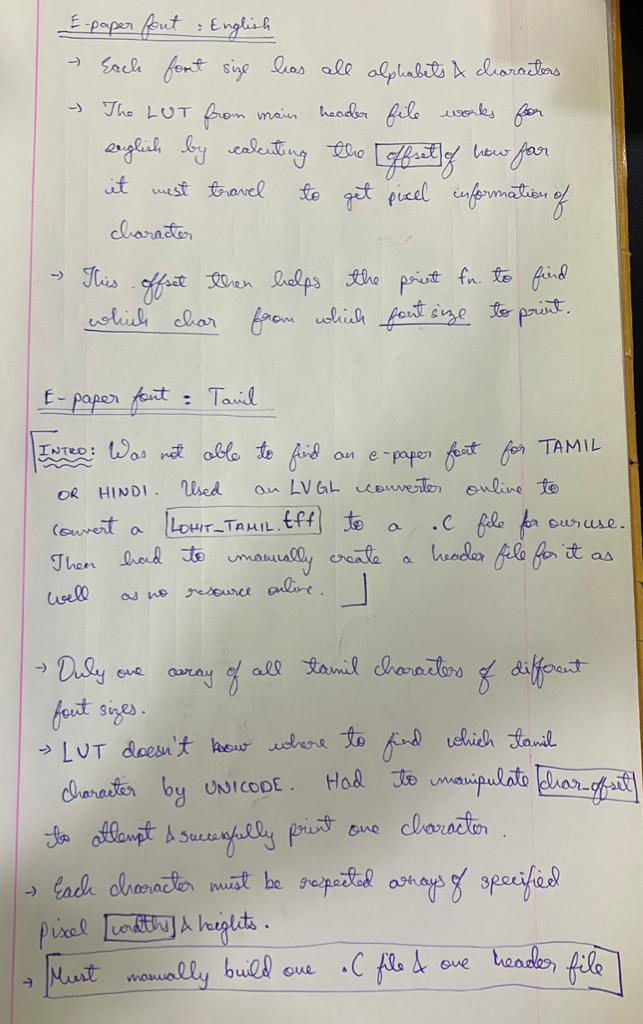 E-paper font : English
→ Each font size has all alphabets & characters
→ The LUT from main header file works for
english by calcuting the offset of how far
it must travel to get pixel information of
character
→ This offset then helps the print fn. to find
which char from which font size to print.
E-paper font : Tamil
INTRO: Was not able to find an e-paper font for TAMIL
OR HINDI. Used an LVGL converter online to
convert a LOHIT_TAMIL.tff to a .C file for our use.
Then had to manually create a header file for it as
well as no resource online.
→ Only one array of all tamil characters of different
font sizes.
→ LUT doesn't know where to find which tamil
character by UNICODE. Had to manipulate char_offset
to attempt & successfully print one character.
→ Each character must be respected arrays of specified
pixel widths & heights.
→ Must manually build one .C file & one header file